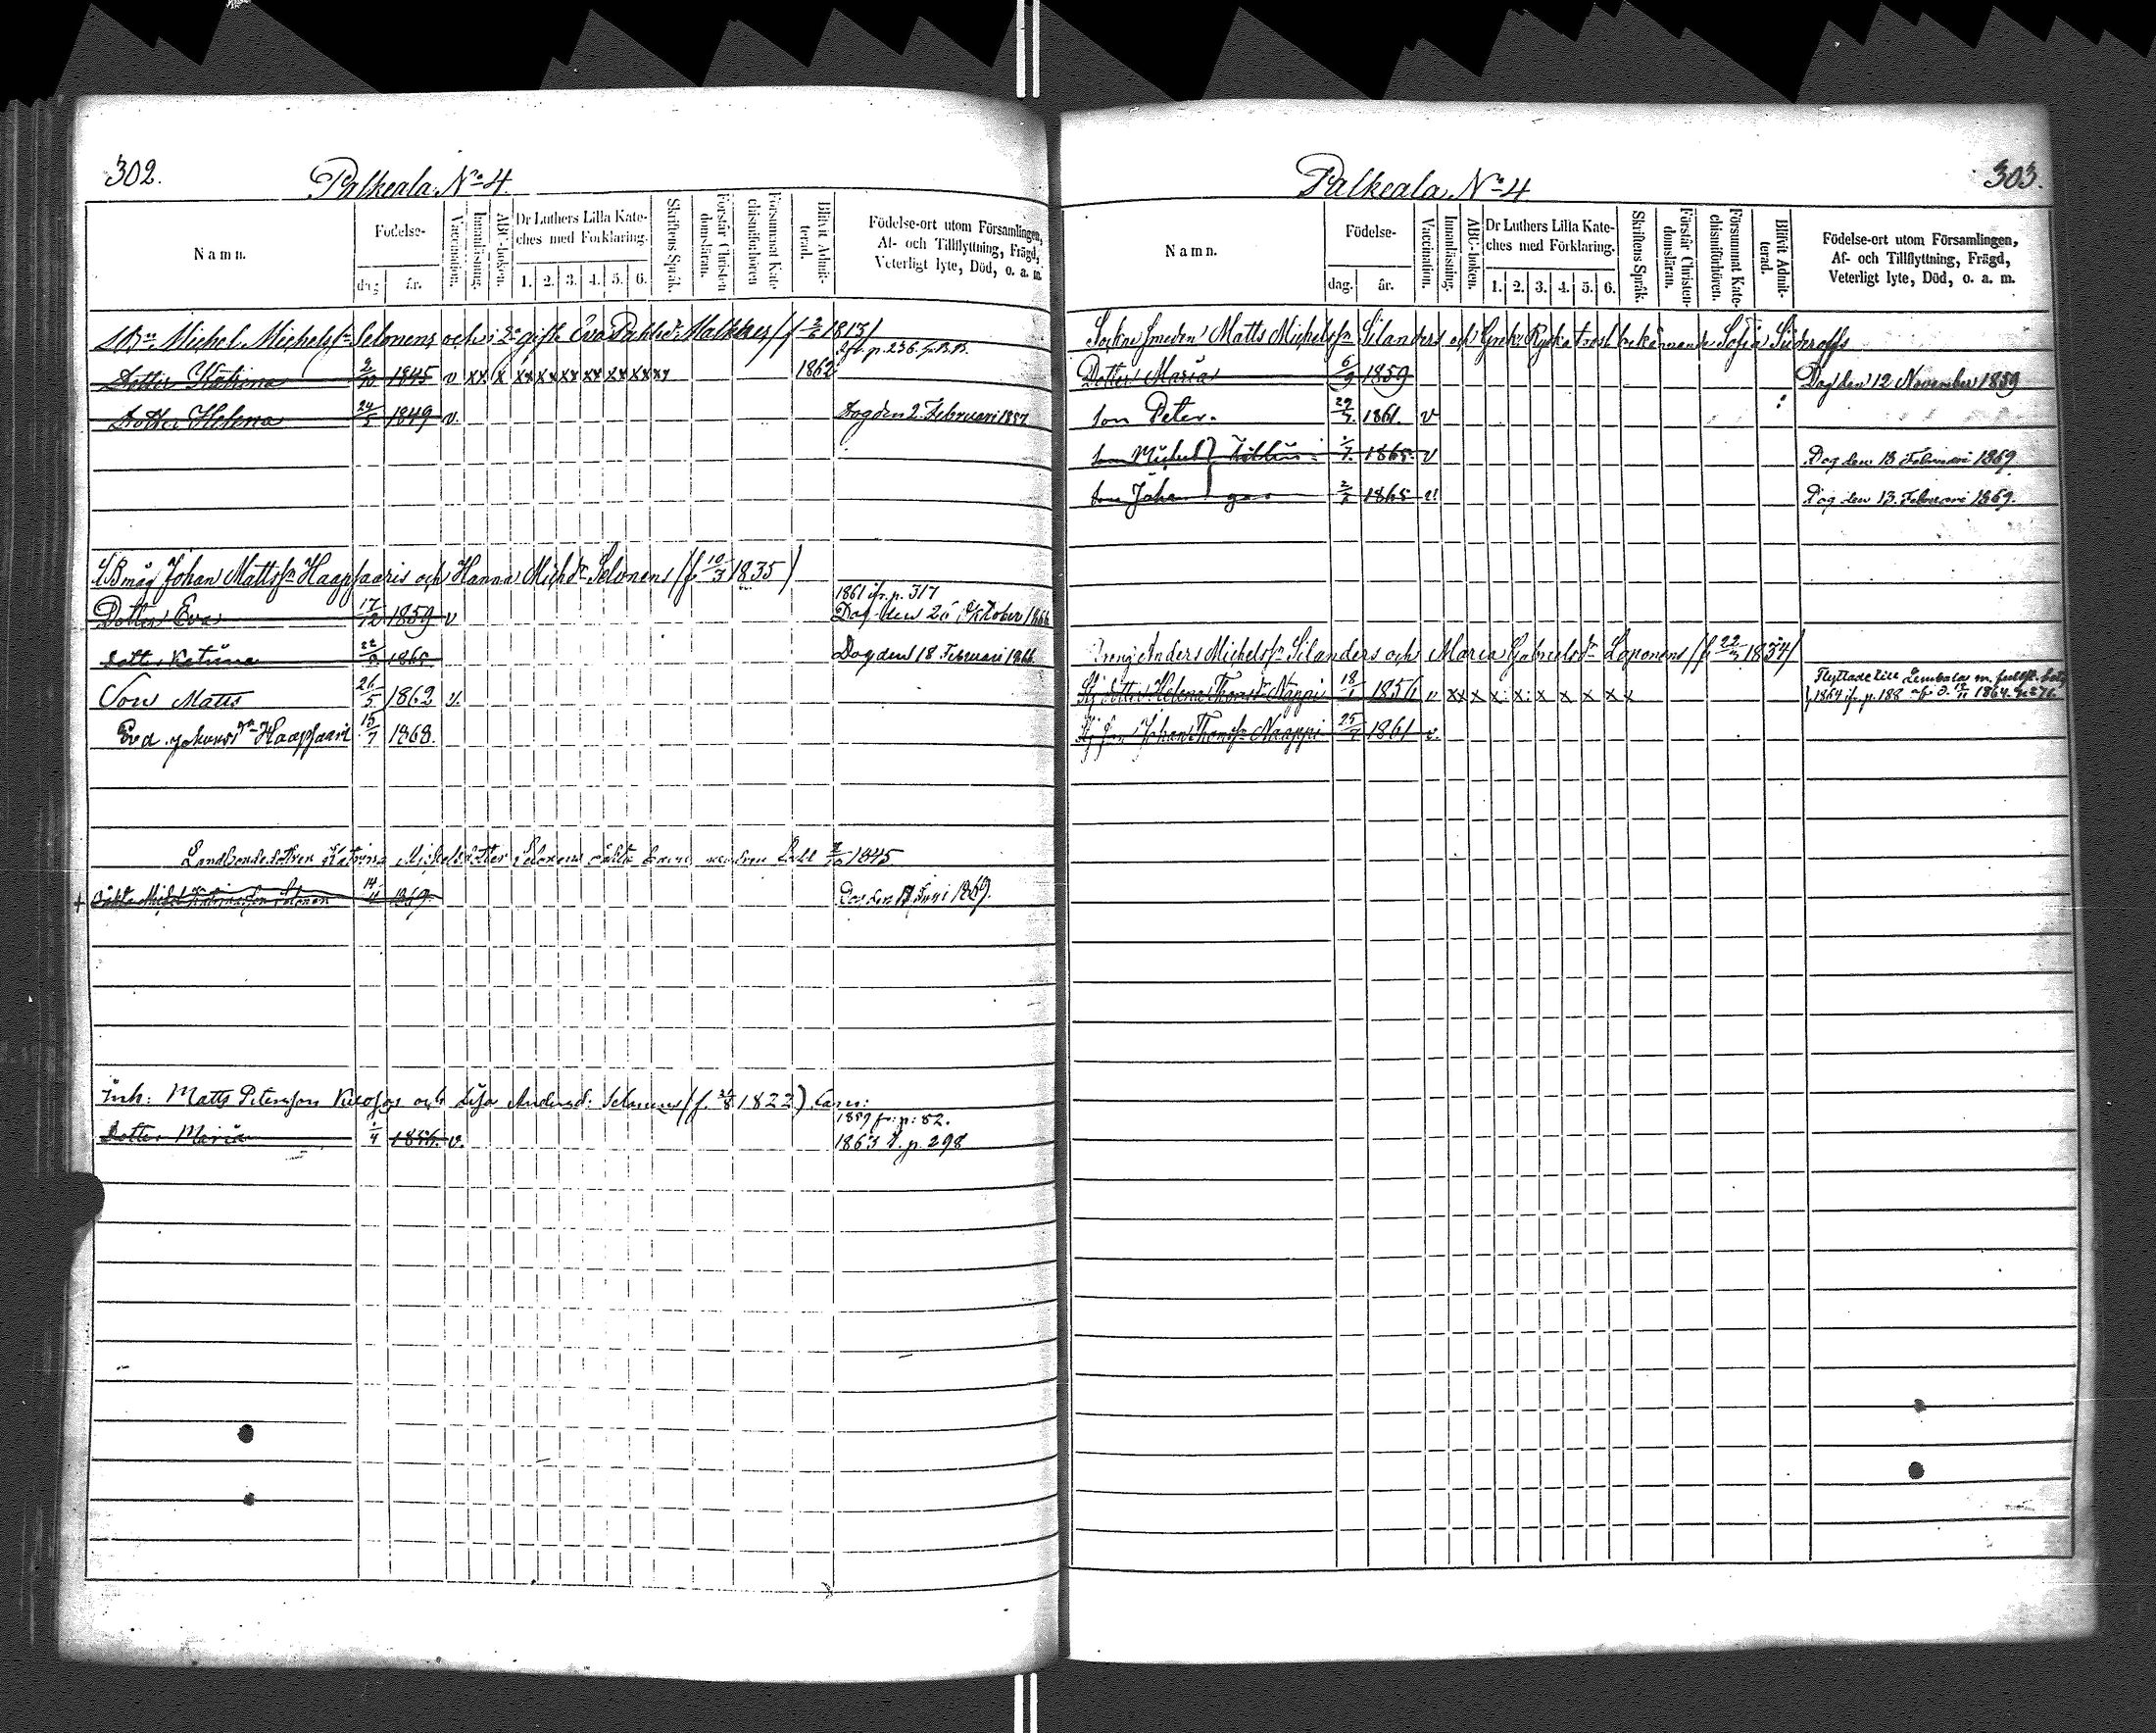 302.
Palkeala No 4.
Namn.
Födelse-
dag
år.
Vaccination.
Innanläsning.
ABC-boken.
Dr Luthers Lilla Kate-
ches med Förklaring.
1. 2. 3. 4. 5. 6.
Skriftens Språk.
Förstår Christen-
domsläran.
Försummat Kate-
chismiförhören
Blifvit Admit-
terad.
Födelse-ort utom Församlingen,
Af- och Tillflyttning, Frägd,
Veterligt lyte, Död, o. a. m.
Michel Michelss:n Selonens och i 2:a gifte Eva Malkkes (f 1813)
p. 236
Dotter Katrina 2/10 1845 v xx x xx xx xx xx xx xx xx 1862
Dotter Helena 24/5 1849 v. Dog den 2 Februari 1857
Johan Mattss:n Haapsaaris och Hanna Mich:dr Selonens (f. 10/3 1835)
1861 ifr. p. 317
Dotter Eva 17/12 1859 v Dog den Oktober
Dott. Katrina 22/ 1865 Dog den 18 Februari 1866
Son Matts 26/5 1862 v.
Eva Johansd:r Haapsaari 15/7 1868.
Landbondedottren Katrina Michelsdotter Selonens oäkta barn 2/10 1845
+ Oäkta Michel Katrinasson Selonen 14/4 1869. Dog den 17 Juni 1869.
Inh: Matts Petersson och Lisa Andersd: Selonens (f. 1822) barn:
1859 fr: p: 82.
Dotter Maria 1/4 1856. v. 1863 t. p. 298
Palkeala No 4
303.
Namn.
Födelse-
dag.
år.
Vaccination.
Innanläsning.
ABC-boken.
Dr Luthers Lilla Kate-
ches med Förklaring.
1. 2. 3. 4. 5. 6.
Skriftens Språk.
Förstår Christen-
domsläran.
Försummat Kate-
chismiförhören.
Blifvit Admit-
terad.
Födelse-ort utom Församlingen,
Af- och Tillflyttning, Frägd,
Veterligt lyte, Död, o. a. m.
Sockne smeden Matts Michelss:n Silanders och Grek. Ryska trosbekännande Sofia
Dotter Maria 6/9 1859 Dog den 12 November 1859
Son Peter. 29/ 1861. v
Son Michel 1865 v Dog den 13 Februari 1869
Son Johan 1865 v Dog den 13 Februari 1869.
Dreng Anders Michelss:n Silanders och Maria Gabrielsd:r Laponens (f. 22/3 1834)
Flyttade till Lembala
Stj dotter Helena Thomsd:r Nappi 18/1 1856 v xx x x x x x x x x 1864 ifr. p. 188
Stj son Johan Thomss:n Nappi 25/ 1861 v.